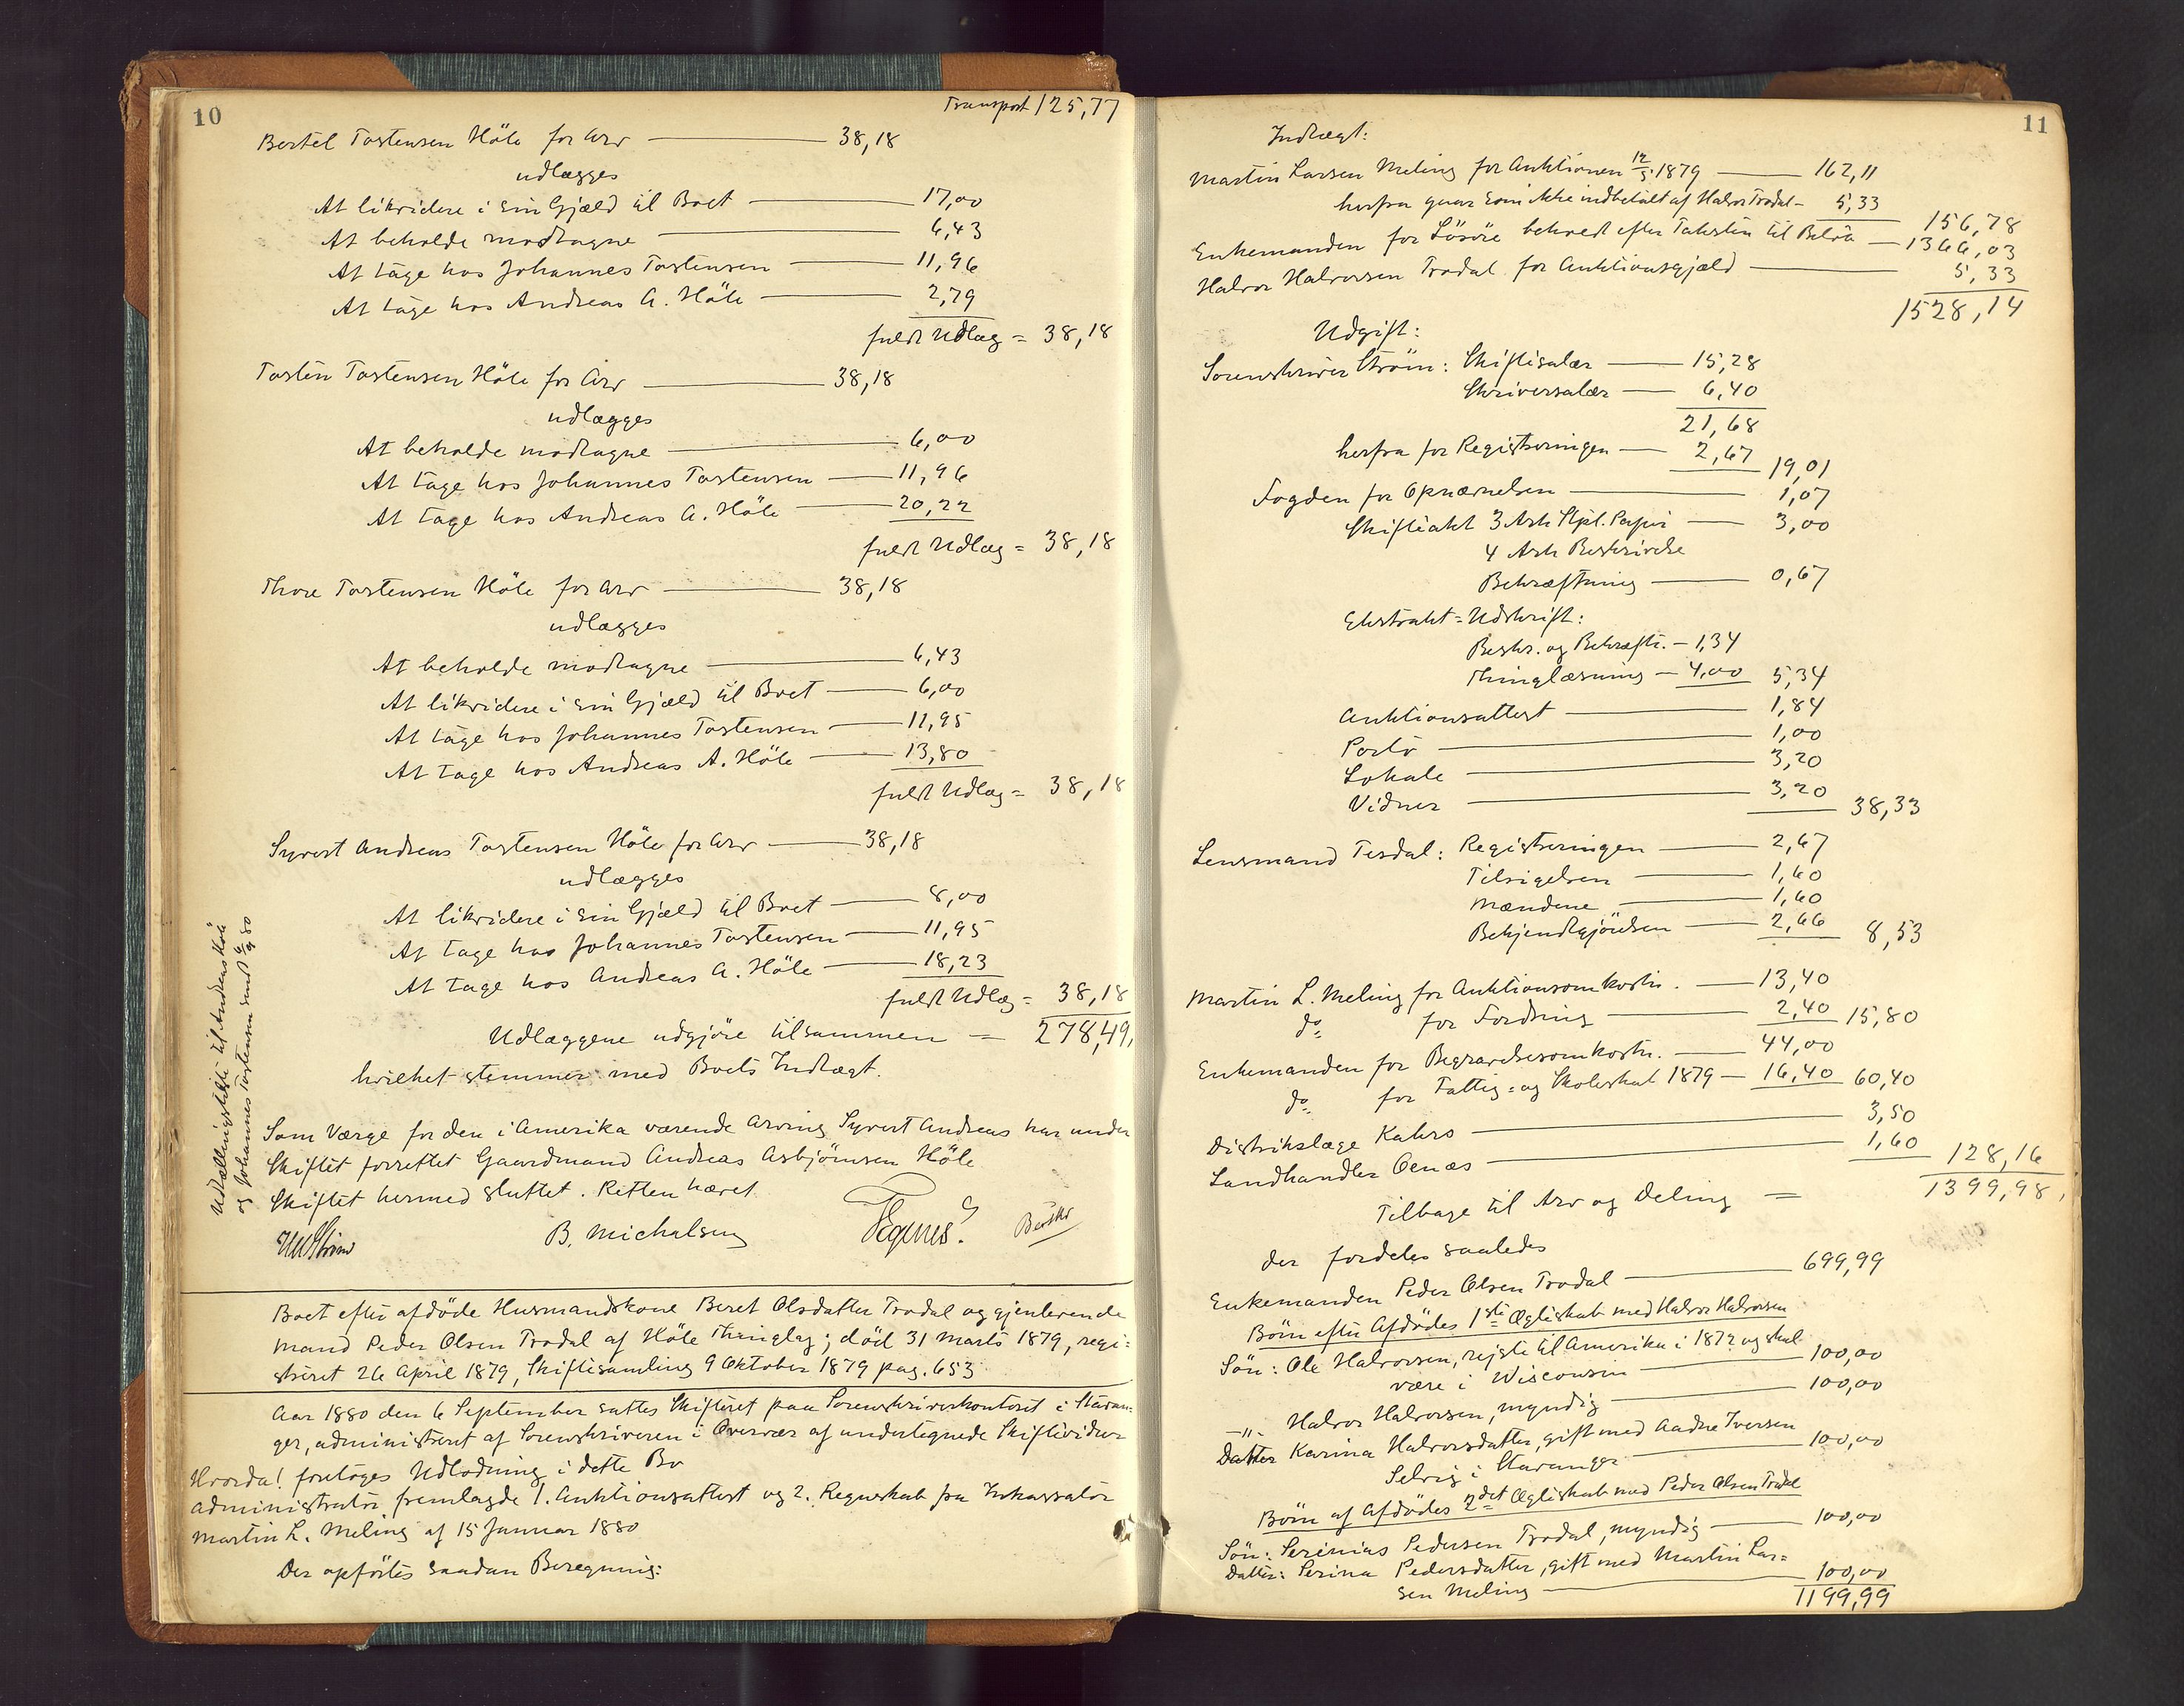 10
Transport 125,77
Bertel Tostensen Höle for Arv 38,18
udlægges
At likvidere i sin Gjæld til Boet 17,00
At beholde modtagne 6,43
At tage hos Johannes Tostensen 11,96
At tage hos Andreas A. Höle 2,79
fuldt Udlæg = 38,18
Tosten Tostensen Höle for Arv 38,18
udlægges
At beholde modtagne 6,00
At tage hos Johannes Tostensen 11,96
At tage hos Andreas A. Höle 20,22
fuldt Udlæg = 38,18
Thore Tostensen Höle for Arv 38,18
udlægges
At beholde modtagne 6,43
At likvidere i sin Gjæld til Boet 6,00
At tage hos Johannes Tostensen 11,95
At tage hos Andreas A. Höle 13,80
fuldt Udlæg = 38,18
Syvert Andreas Tostensen Höle for Arv 38,18
udlægges
At likvidere i sin Gjæld til Boet 8,00
At tage hos Johannes Tostensen 11,95
At tage hos Andreas A. Höle 18,23
fuldt Udlæg = 38,18
Udlæggene udgjöre tilsammen = 278,49,
hvilket stemmer med Boets Indtægt.
Som Værge for den i Amerika værende Arving Syvert Andreas har under
Skiftet forrettet Gaardmand Andreas Asbjörnsen Höle
Skiftet hermed sluttet. Retten hævet
B. Michalsen
Udfællingsliste til Andreas Höle
og Johannes Tostensen sendt 6/9 80
Boet efter afdöde Husmandskone Beret Olsdatter Trodal og gjenlevende
Mand Peder Olsen Trodal af Höle Thinglag; död 31 Marts 1879, regi-
streret 26 April 1879, Skiftesamling 9 Oktober 1879 pag. 653
Aar 1880 den 6 September sattes Skifteret paa Sorenskriverkontoret i Stavan-
ger, administreret af Sorenskriveren i Overvær af undertegnede Skiftevidner
Hvorda! foretoges Udlodning i dette Bo
Administrator fremlagde 1. Auktionsattest og 2. Regnskab fra Inkassator
Martin L. Meling af 15 Januar 1880
Der opförtes saadan Beregning:
11
Indtægt:
Martin Larsen Meling for Auktionen 12/5 1879 162,11
herfra gaar som ikke indbetalt af Halvor Trodal 5,33 156,78
Enkemanden for Lösöre beholdt efter Taksten til Belöb 1366,03
Halvor Halvorsen Trodal for Auktionsgjæld 5,33
1528,14
Udgift:
Sorenskriver Ström: Skiftesalær 15,28
Skriversalær 6,40
21,68
herfra for Registreringen 2,67 19,01
Fogden for Opnævnelsen 1,07
Skifteakt 3 Ark Stpl. Papir 3,00
4 Ark Beskrivelse
Bekræftning 0,67
Ekstrakt-Udskrift:
Beskr. og Bekræftn. 1,34
Thinglæsning 4,00 5,34
Auktionsattest 1,84
Porto 1,00
Lokale 3,20
Vidner 3,20
38,33
Lensmand Tesdal: Registreringen 2,67
Tilsigelsen 1,60
Mændene 1,60
Bekjendtgjörelsen 2,66 8,53
Martin L. Meling for Auktionsomkostn. 13,40
do for Fordring 2,40 15,80
Enkemanden for Begravelsesomkostn. 44,00
do for Fattig- og Skoleskat 1879 16,40 60,40
Distriktslæge Kahrs 3,50
Landhandler Aenæs 1,60 128,16
Tilbage til Arv og Deling = 1399,98,
der fordeles saaledes
Enkemanden Peder Olsen Trodal 699,99
Börn efter Afdödes 1ste Ægteskab med Halvor Halvorsen
Sön: Ole Halvorsen, rejste til Amerika i 1872 og skal
være i Wisconsin 100,00
–"– Halvor Halvorsen, myndig 100,00
Datter Karina Halvorsdatter, gift med Aadne Iversen
Selvig i Stavanger 100,00
Börn af Afdödes 2det Ægteskab med Peder Olsen Trodal
Sön: Serinius Pedersen Trodal, myndig 100,00
Datter: Serina Pedersdatter, gift med Martin Lar-
sen Meling 100,00
1199,99